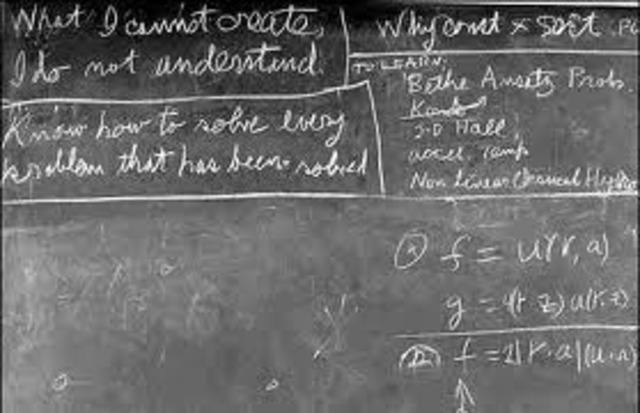 What I cannot create,
I do not understand.
Know how to solve every
problem that has been solved
Why const × sort .PO
TO LEARN:
Bethe Ansatz Probs.
Kondo
2-D Hall
accel. temp
Non Linear Classical Hydro
f = U(r, a)
g = 4(r z) u(r, z)
f = 2|r·a|(u·a)